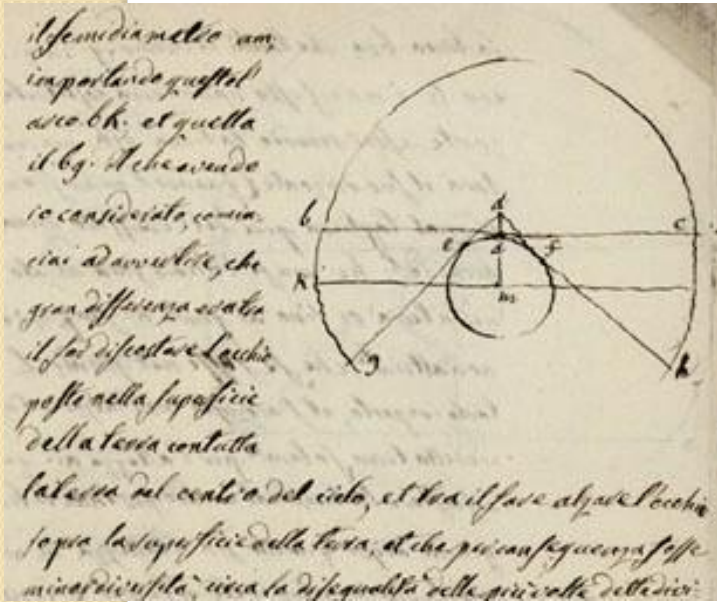 il semidiametro am,
importando questo l'
arco bk. et quella
il bg. il che avendo
io considerato, comin-
ciai ad avvertire, che
gran differenza era tra
il far discostare l'occhio
posto nella superficie
della terra con tutta
la terra dal centro del cielo, et tra il fare alzare l'occhio
sopra la superficie della terra, et che per conseguenza fosse
minor diversità, circa la disegualità delle più volte dette divi-
d
b
c
e
a
f
k
m
g
h